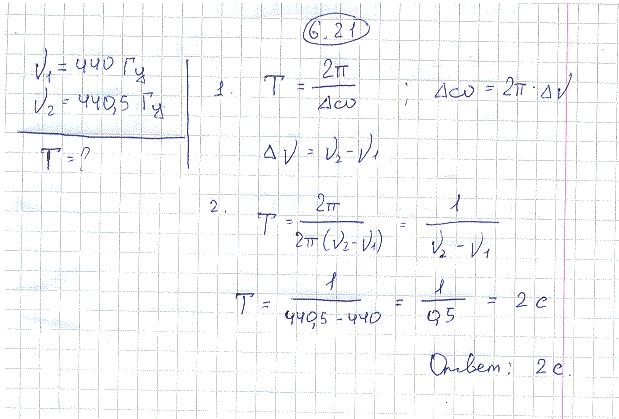 6.21
ν₁ = 440 Гц
ν₂ = 440,5 Гц
T = ?
1. T = 2π/Δω ; Δω = 2π · Δν
Δν = ν₂ − ν₁
2. T = 2π/2π(ν₂ − ν₁) = 1/ν₂ − ν₁
T = 1/440,5 − 440 = 1/0,5 = 2 с
Ответ: 2 с.